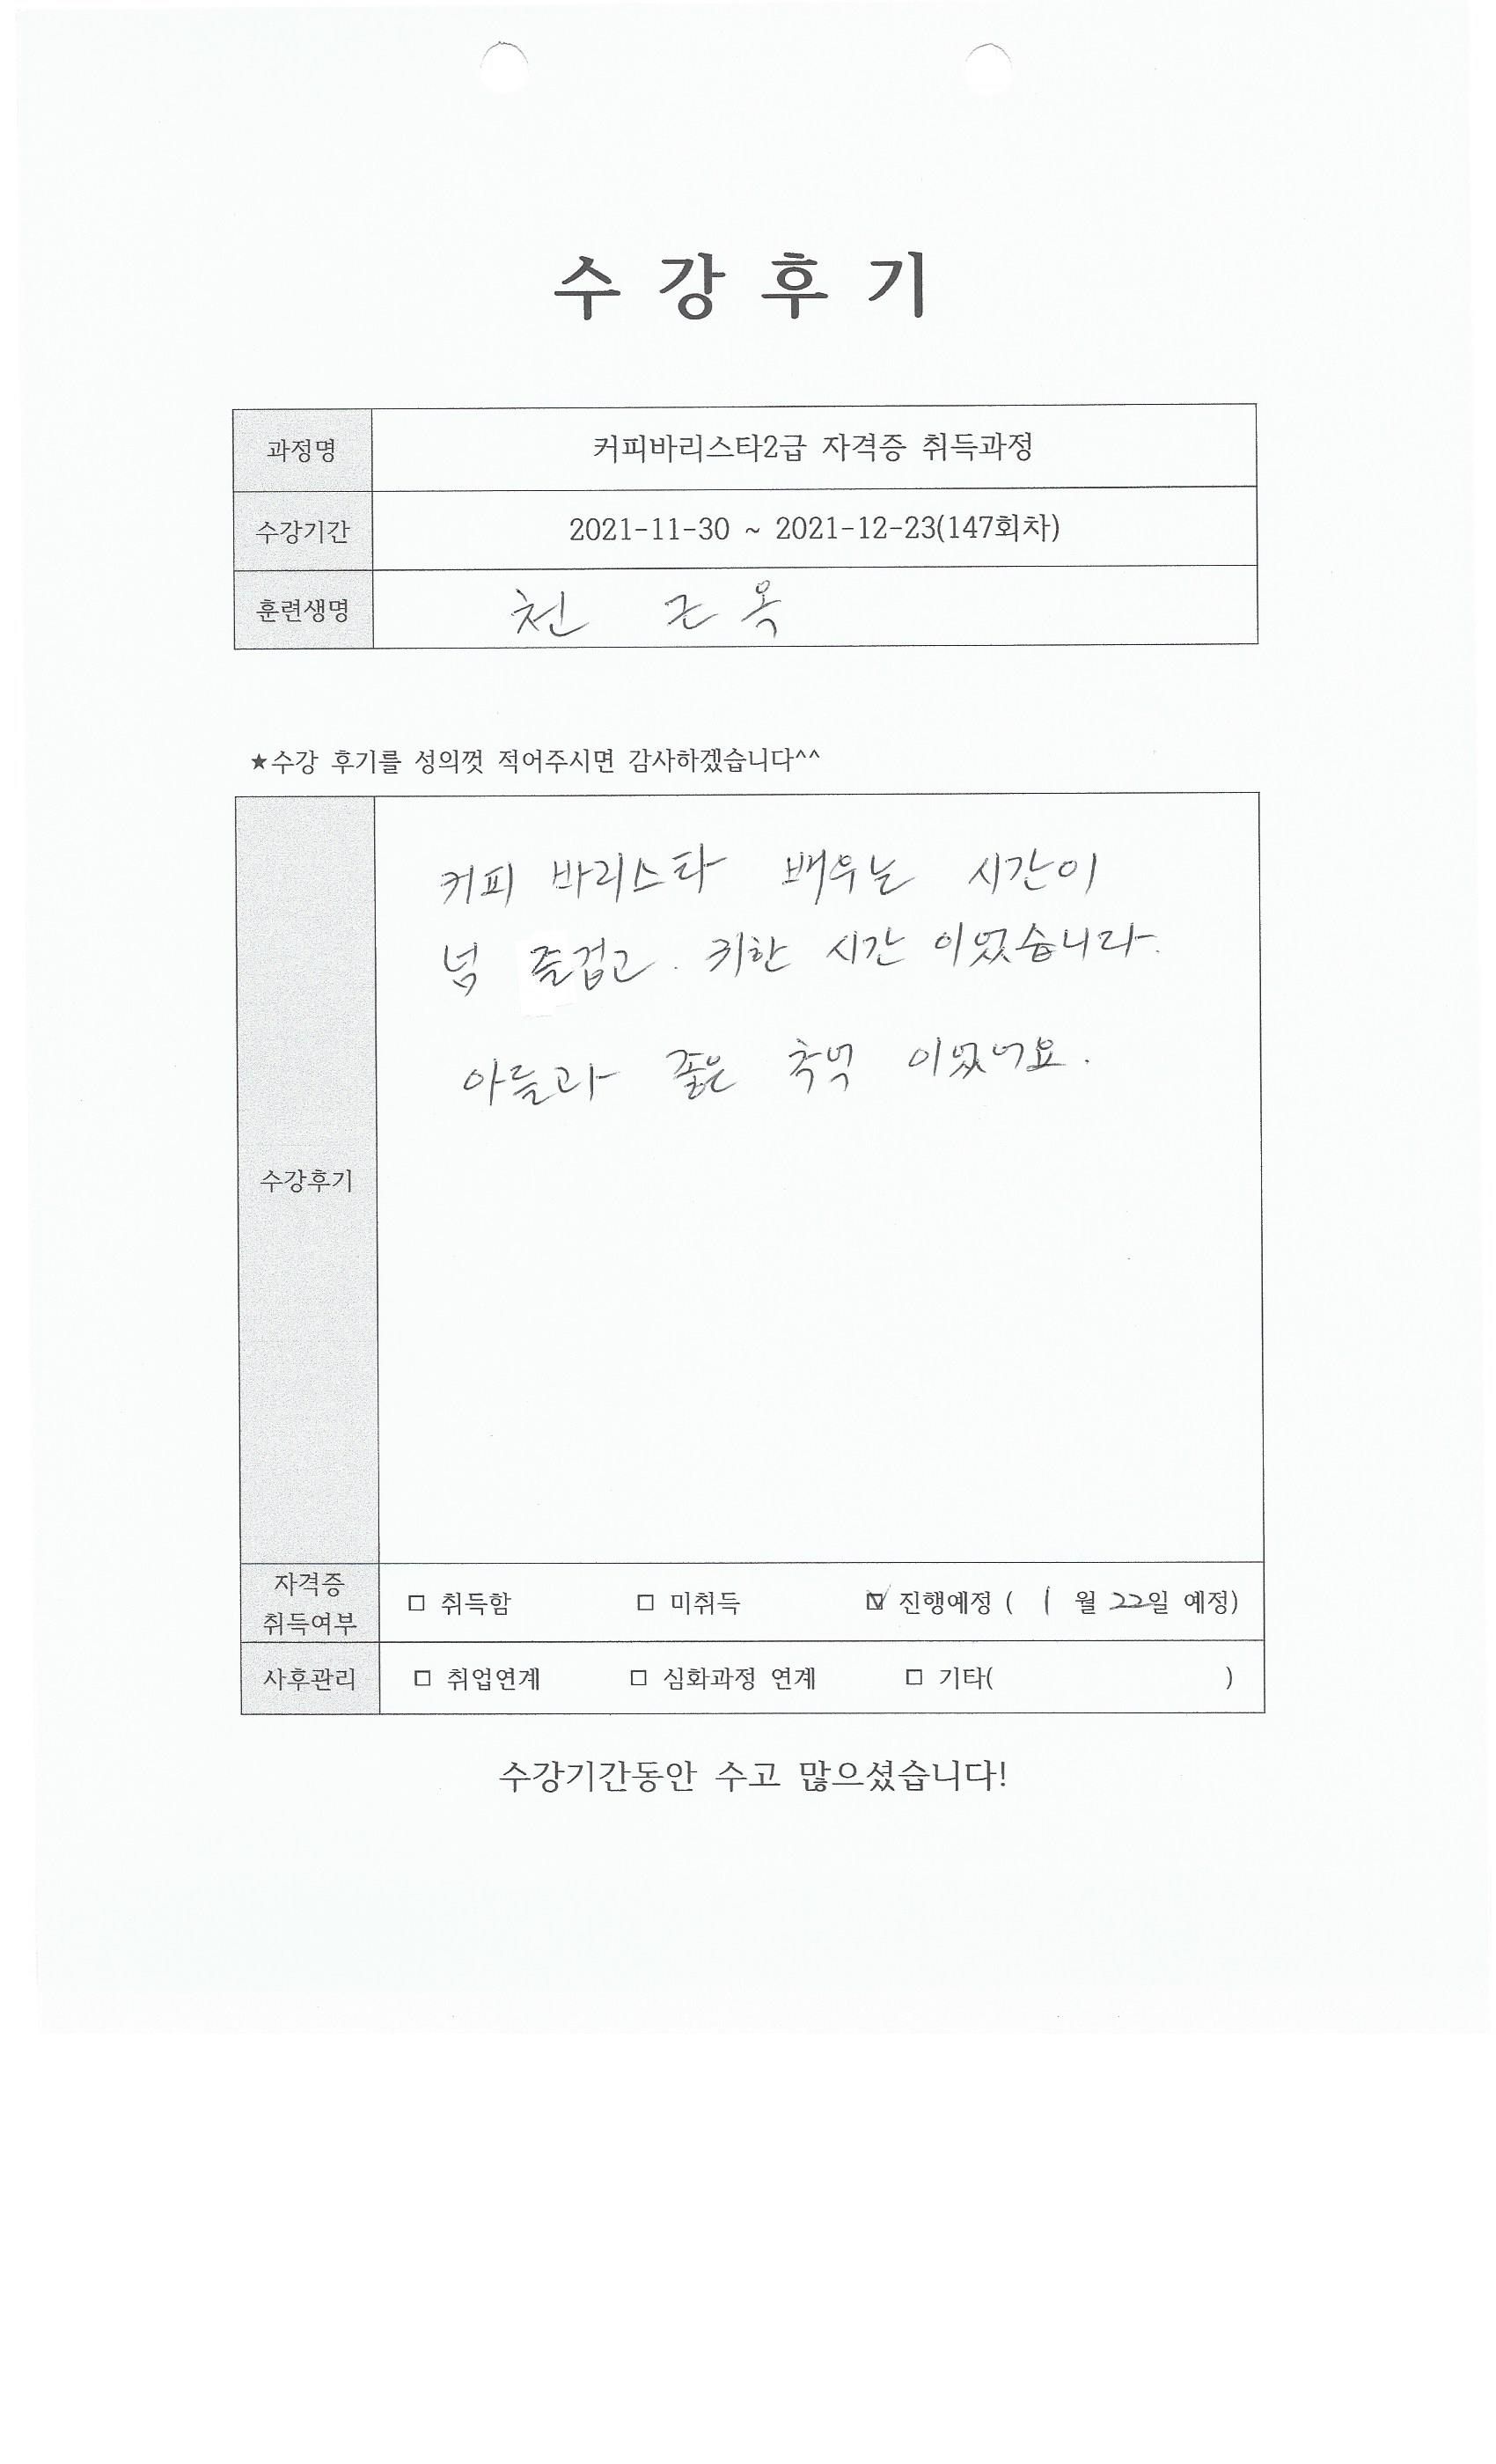 수 강 후 기
과정명 커피바리스타2급 자격증 취득과정
수강기간 2021-11-30 ~ 2021-12-23(147회차)
훈련생명 천 근 옥
★수강 후기를 성의껏 적어주시면 감사하겠습니다^^
수강후기
커피 바리스타 배우는 시간이
넘 즐겁고. 귀한 시간 이었습니다.
아들과 좋은 추억 이었어요.
자격증
취득여부
□ 취득함 □ 미취득 ☑ 진행예정 ( 1 월 22일 예정)
사후관리 □ 취업연계 □ 심화과정 연계 □ 기타( )
수강기간동안 수고 많으셨습니다!